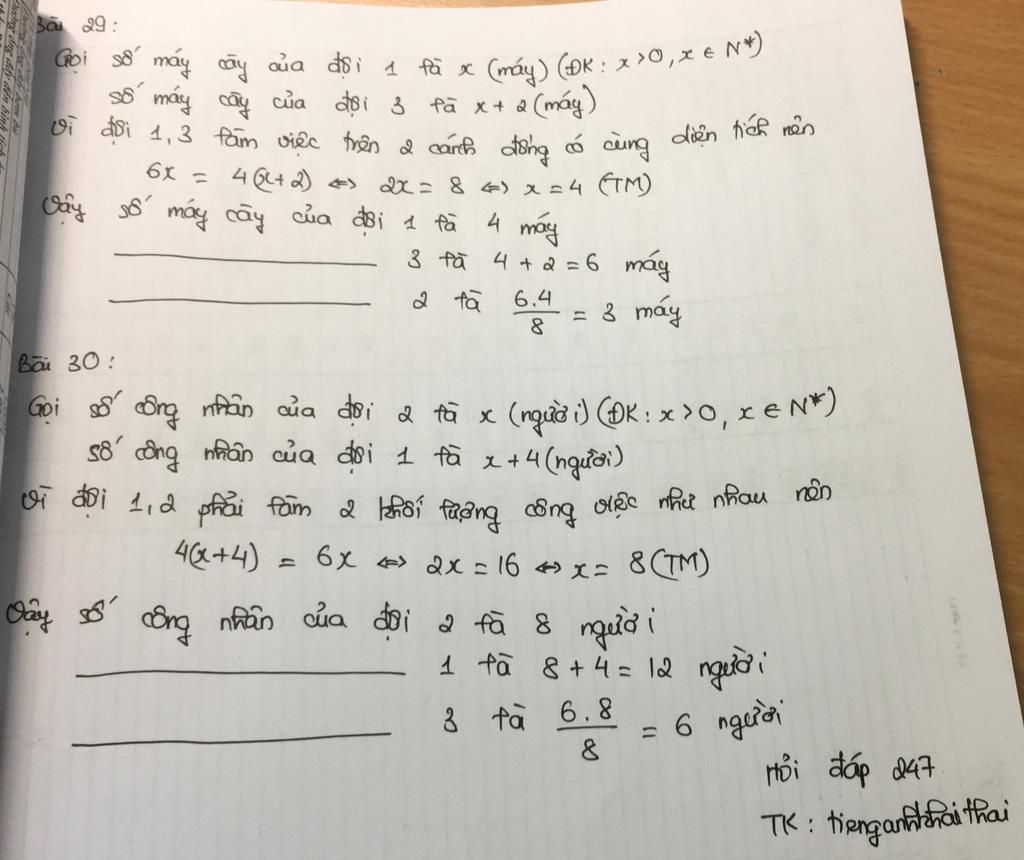 Bài 29:
Gọi số máy cày của đội 1 là x (máy) (ĐK: x>0, x ∈ N*)
số máy cày của đội 3 là x+2 (máy)
Vì đội 1,3 làm việc trên 2 cánh đồng có cùng diện tích nên
6x = 4(x+2) ⇔ 2x = 8 ⇔ x = 4 (TM)
Vậy số máy cày của đội 1 là 4 máy
3 là 4 + 2 = 6 máy
2 là 6.4/8 = 3 máy
Bài 30:
Gọi số công nhân của đội 2 là x (người) (ĐK: x>0, x ∈ N*)
số công nhân của đội 1 là x+4 (người)
Vì đội 1,2 phải làm 2 khối lượng công việc như nhau nên
4(x+4) = 6x ⇔ 2x = 16 ⇔ x = 8 (TM)
Vậy số công nhân của đội 2 là 8 người
1 là 8 + 4 = 12 người
3 là 6.8/8 = 6 người
Hỏi đáp 247
TK: tienganhkhaithai